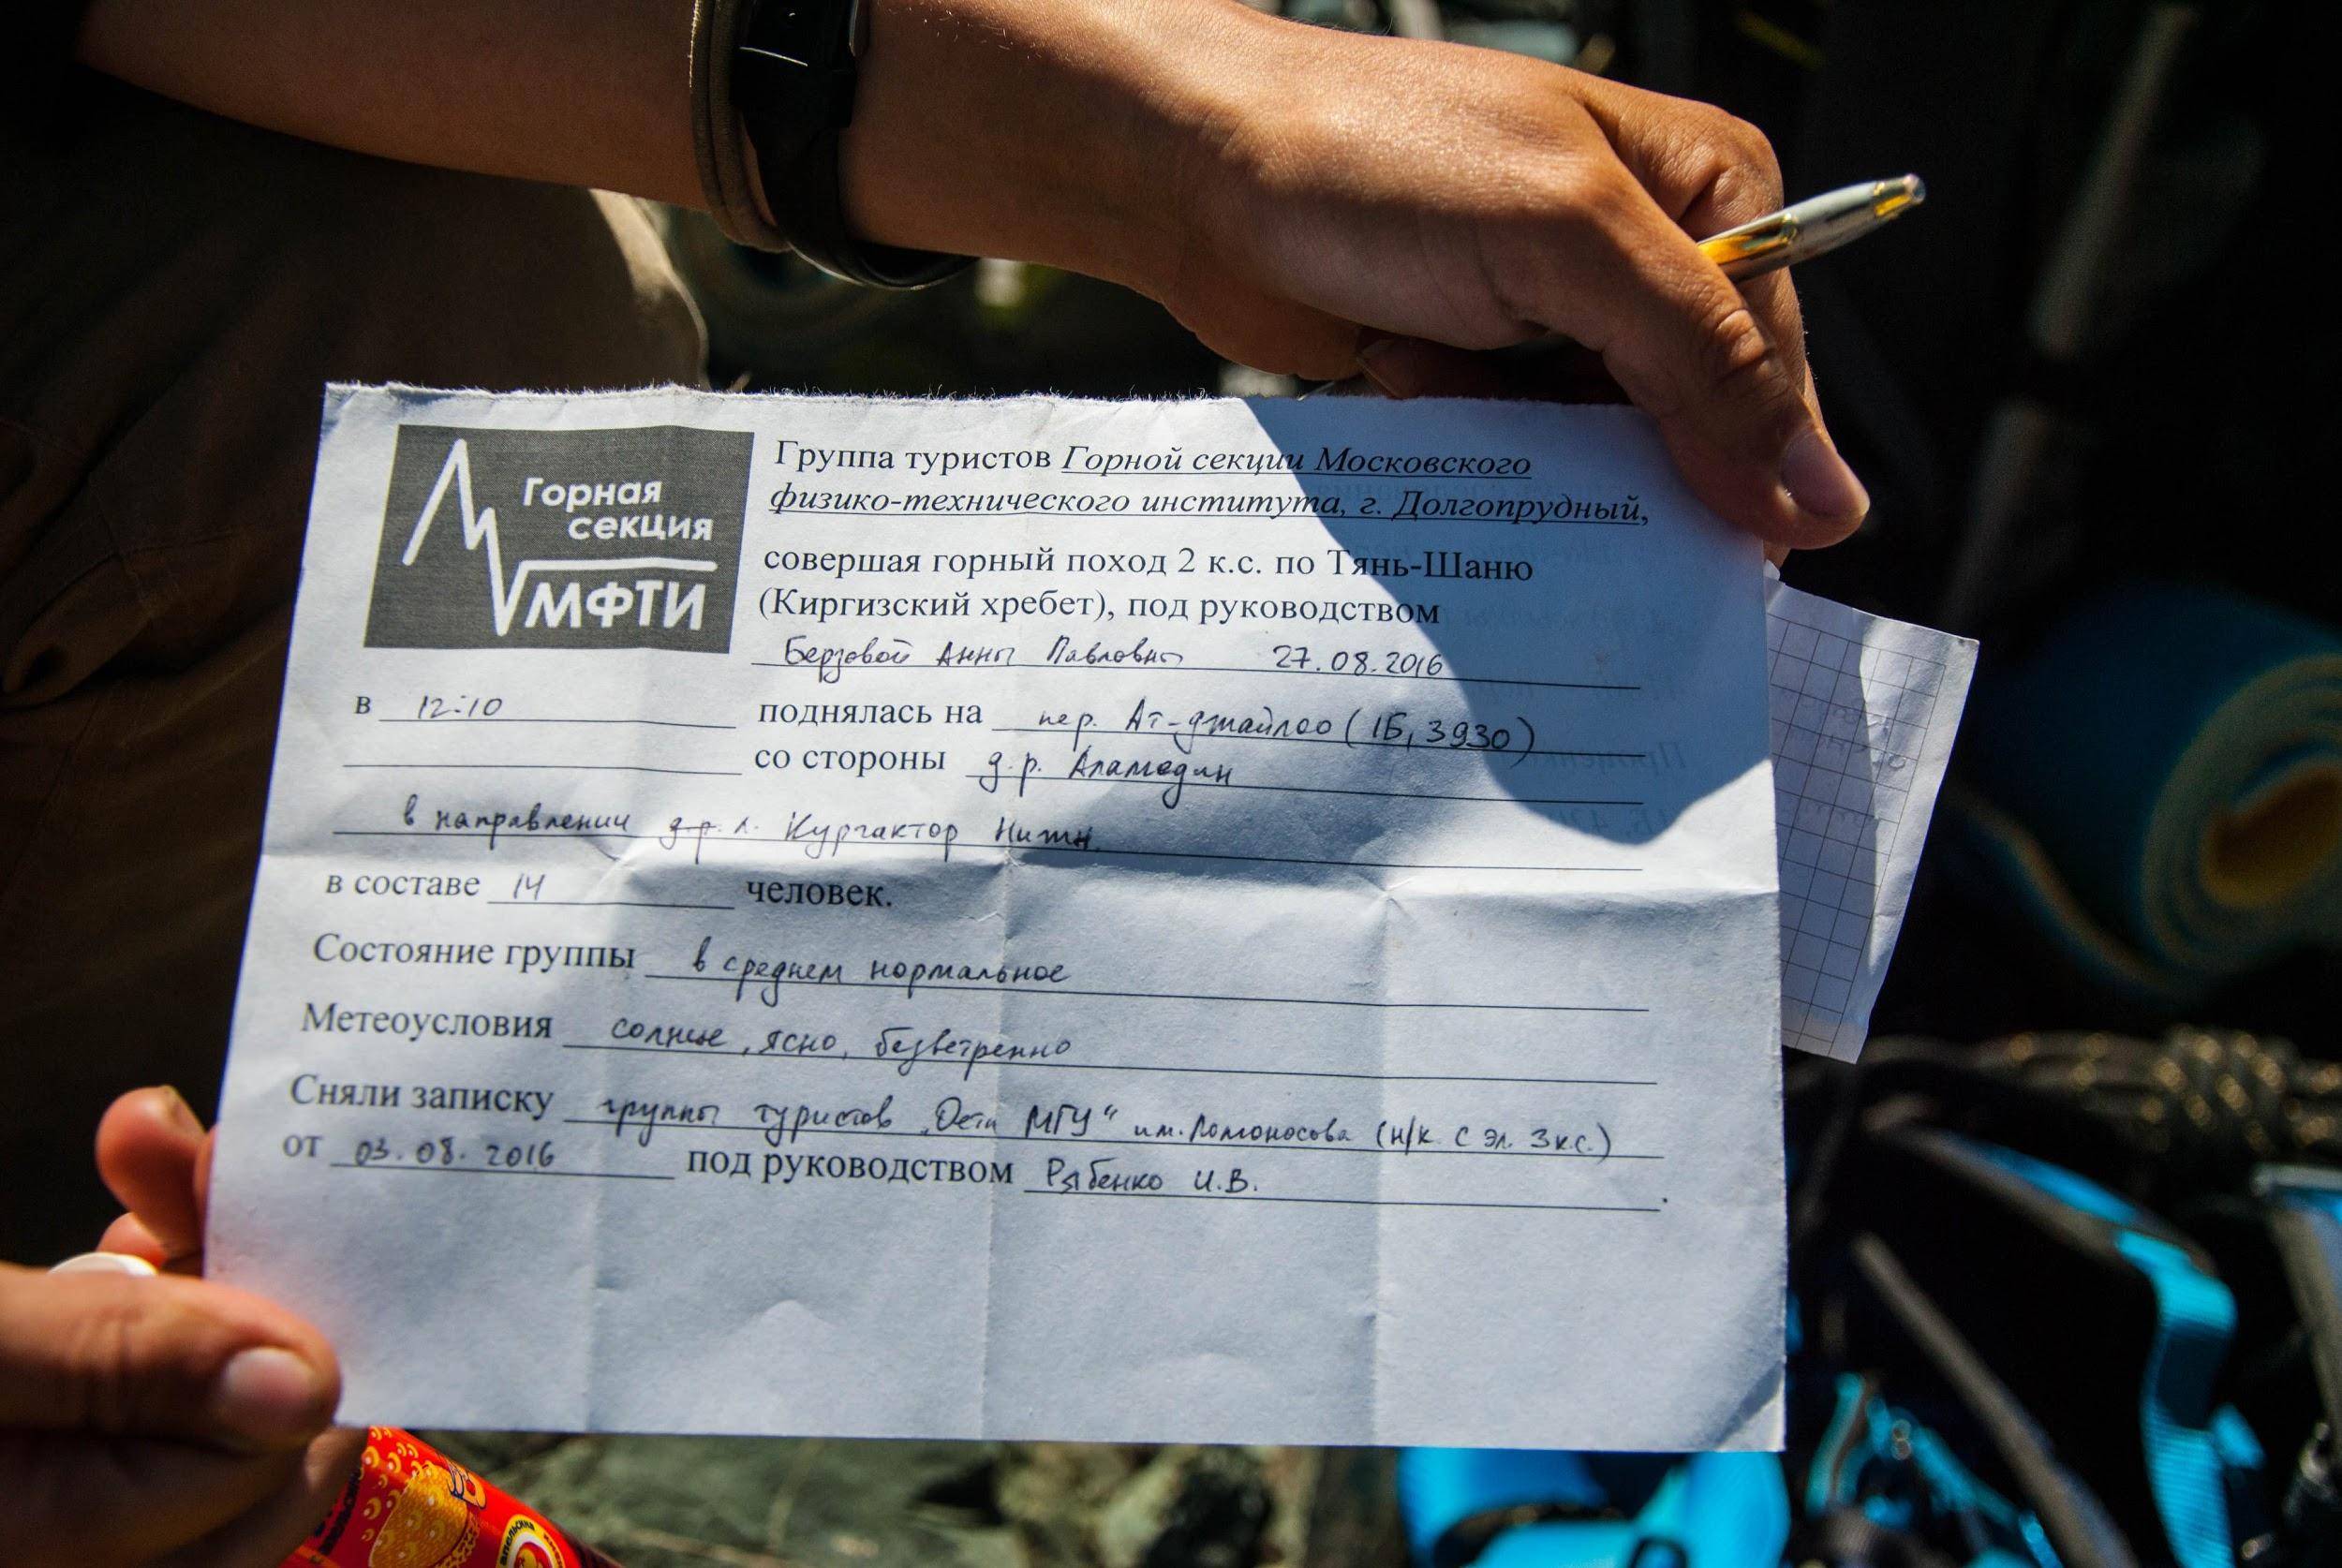 Горная
секция
МФТИ
Группа туристов Горной секции Московского
физико-технического института, г. Долгопрудный,
совершая горный поход 2 к.с. по Тянь-Шаню
(Киргизский хребет), под руководством
Берзовой Анны Павловны 27.08.2016
в 12:10 поднялась на пер. Ат-джайлоо (1Б, 3930)
со стороны д.р. Аламедин
в направлении д.р. л. Кургактор Нижн.
в составе 14 человек.
Состояние группы в среднем нормальное
Метеоусловия солнце, ясно, безветренно
Сняли записку группы туристов „Дети МГУ“ им. Ломоносова (н/к с эл. 3 к.с.)
от 03.08.2016 под руководством Рябенко И.В.